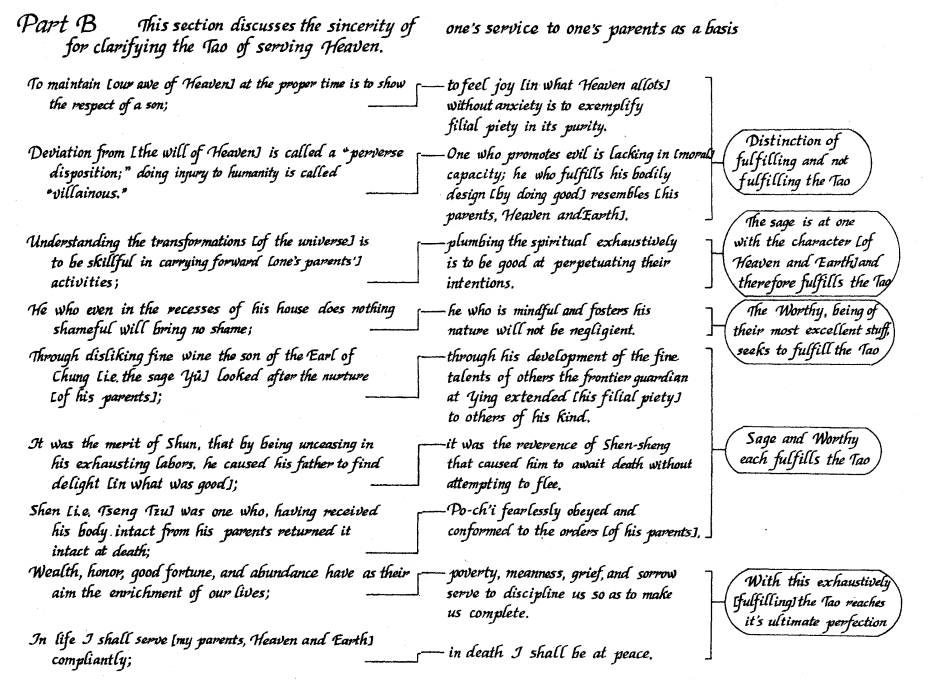 Part B This section discusses the sincerity of one's service to one's parents as a basis
for clarifying the Tao of serving Heaven.
To maintain [our awe of Heaven] at the proper time is to show
the respect of a son;
to feel joy [in what Heaven allots]
without anxiety is to exemplify
filial piety in its purity.
Deviation from [the will of Heaven] is called a "perverse
disposition;" doing injury to humanity is called
"villainous."
One who promotes evil is lacking in [moral]
capacity; he who fulfills his bodily
design [by doing good] resembles [his
parents, Heaven and Earth].
Distinction of
fulfilling and not
fulfilling the Tao
Understanding the transformations [of the universe] is
to be skillful in carrying forward [one's parents']
activities;
plumbing the spiritual exhaustively
is to be good at perpetuating their
intentions.
The sage is at one
with the character [of
Heaven and Earth] and
therefore fulfills the Tao
He who even in the recesses of his house does nothing
shameful will bring no shame;
he who is mindful and fosters his
nature will not be negligient.
The Worthy, being of
their most excellent stuff,
seeks to fulfill the Tao
Through disliking fine wine the son of the Earl of
Chung [i.e. the sage Yü] looked after the nurture
[of his parents];
through his development of the fine
talents of others the frontier guardian
at Ying extended [his filial piety]
to others of his kind.
It was the merit of Shun, that by being unceasing in
his exhausting labors, he caused his father to find
delight [in what was good];
it was the reverence of Shen-sheng
that caused him to await death without
attempting to flee.
Shen [i.e. Tseng Tzu] was one who, having received
his body intact from his parents returned it
intact at death;
Po-ch'i fearlessly obeyed and
conformed to the orders [of his parents].
Sage and Worthy
each fulfills the Tao
Wealth, honor, good fortune, and abundance have as their
aim the enrichment of our lives;
poverty, meanness, grief, and sorrow
serve to discipline us so as to make
us complete.
In life I shall serve [my parents, Heaven and Earth]
compliantly;
in death I shall be at peace.
With this exhaustively
[fulfilling] the Tao reaches
it's ultimate perfection